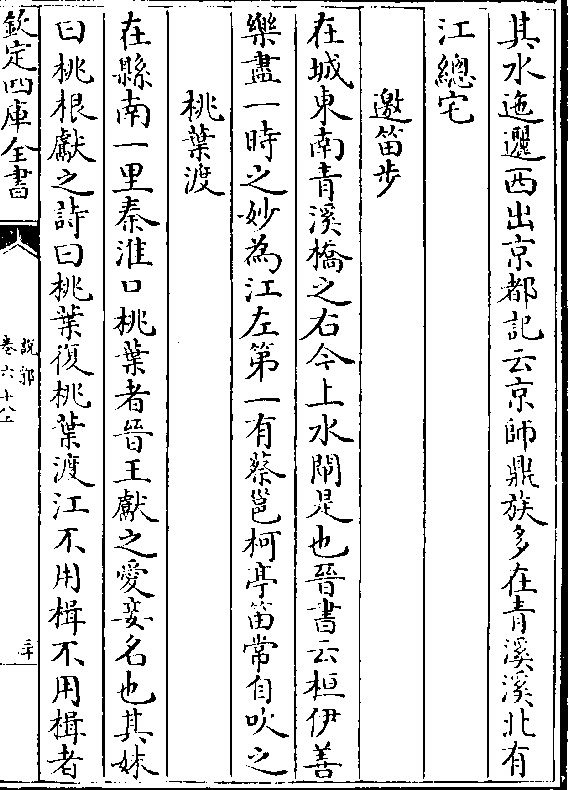 其水迤邐西出京都記云京師鼎族多在青溪溪北有
江總宅
邀笛步
在城東南青溪橋之右今上水閘是也晉書云桓伊善
樂盡一時之妙為江左第一有蔡邕柯亭笛常自吹之
桃葉渡
在縣南一里秦淮口桃葉者晉王獻之愛妾名也其妹
曰桃根獻之詩曰桃葉復桃葉渡江不用楫不用楫者
欽定四庫全書
說郛
卷六十八上